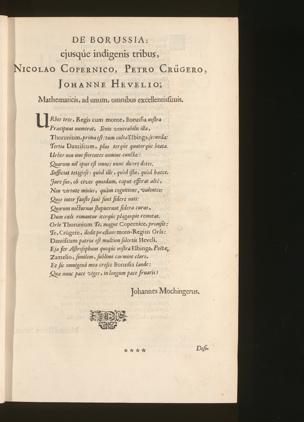 DE BORUSSIA:
ejusque indigenis tribus,
NICOLAO COPERNICO, PETRO CRÜGERO,
JOHANNE HEVELIO;
Mathematicis, ad unum, omnibus excellentissimis.
URbes tres, Regis cum monte, Borussia nostra
Præcipuas numerat, Sene venerabilis illa,
Thorunium, prima est: tum culta Elbinga, secunda:
Tertia Dantiscum, plus terque quaterque beata.
Urbes
Quarum nil opus est
Sufficiat tetigisse: quid illa, quid ista, quid hæcce.
Jure suo, ob cives quosdam, caput efferat alte,
Non virtute minus, quàm cognitione, valentes:
Quos inter fausto sunt sidere nati:
Quorum nocturnas stupuerunt sidera curas,
Dum cœli remantur iterque plagasque remotas.
Orte Thorunium Te, magne Copernice, promsit:
Te, Crügere, dedit præstans mons-Regius Orbi:
Dantiscum patria est multum solertis Heveli.
Eja fer Astrosophum quoque nostra Elbinga, Poëta
Zamelio, similem, sublimi carmine claro.
Et sic omnigenâ mea crescet Borussia laude:
Quæ nunc pace viget, in longum pace fruaris!
Johannes Mochingerus.
****